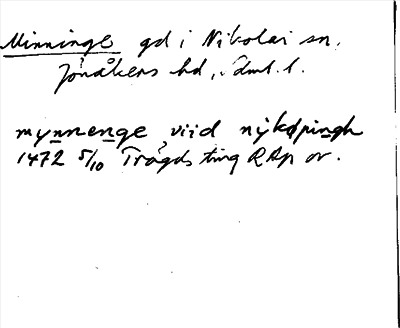 Minninge gd i Nikolai sn.
Jönåkers hd, Sdml. l.
mynnenge viid nyköpingh
1472 5/10 Trögds ting RAp or.